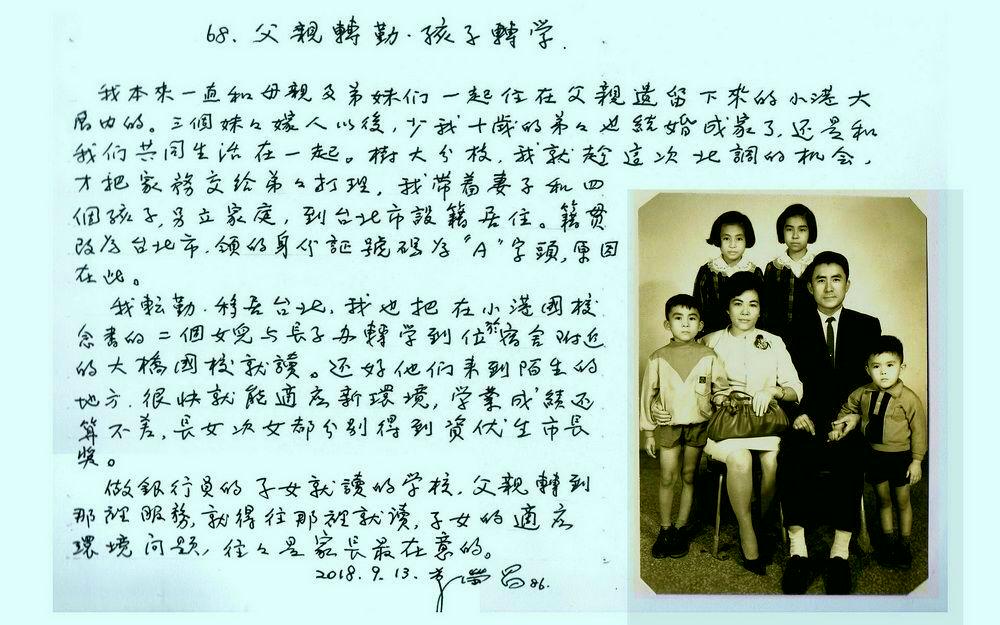 68. 父親轉勤．孩子轉学．
我本來一直和母親及弟妹们一起住在父親遺留下來的小港大
居内的。三個妹々嫁人以後，少我十歲的弟々也結婚成家了，还是和
我们共同生活在一起。樹大分枝，我就趁這次北調的机会，
才把家務交給弟々打理，我帶着妻子和四
個孩子，另立家庭，到台北市設籍居住。籍贯
改为台北市．領的身份証號碼为“A”字頭，原因
在此。
我転勤．移居台北，我也把在小港國校
念書的二個女兒与長子办轉学到位於宿舍附近
的大橋國校就讀。还好他们来到陌生的
地方．很快就能適应新環境，学業成績还
算不差，長女次女都分別得到資优生市長
奬。
做銀行員的子女就讀的学校，父親轉到
那裡服務，就得往那裡就读，子女的適应
環境问题，往々是家長最在意的。
2018.9.13. 86.